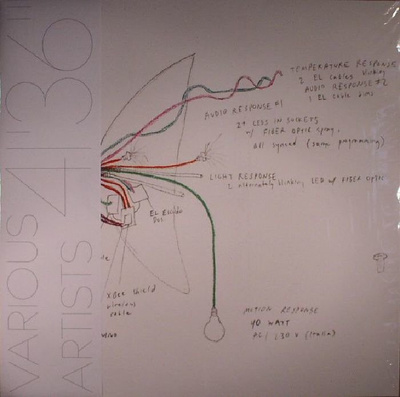 VARIOUS
ARTISTS
TEMPERATURE RESPONSE
2 EL Cables blinking
AUDIO RESPONSE #2
1 EL Cable
AUDIO RESPONSE #1
LED IN SOCKETS
w/ FIBER OPTIC spray.
All synced (same programming)
LIGHT RESPONSE
2 alternately blinking LED w/ FIBER OPTIC
EL Escudo
Dos
XBee Shield
wireless
cable
MOTION RESPONSE
40 WATT
AC/